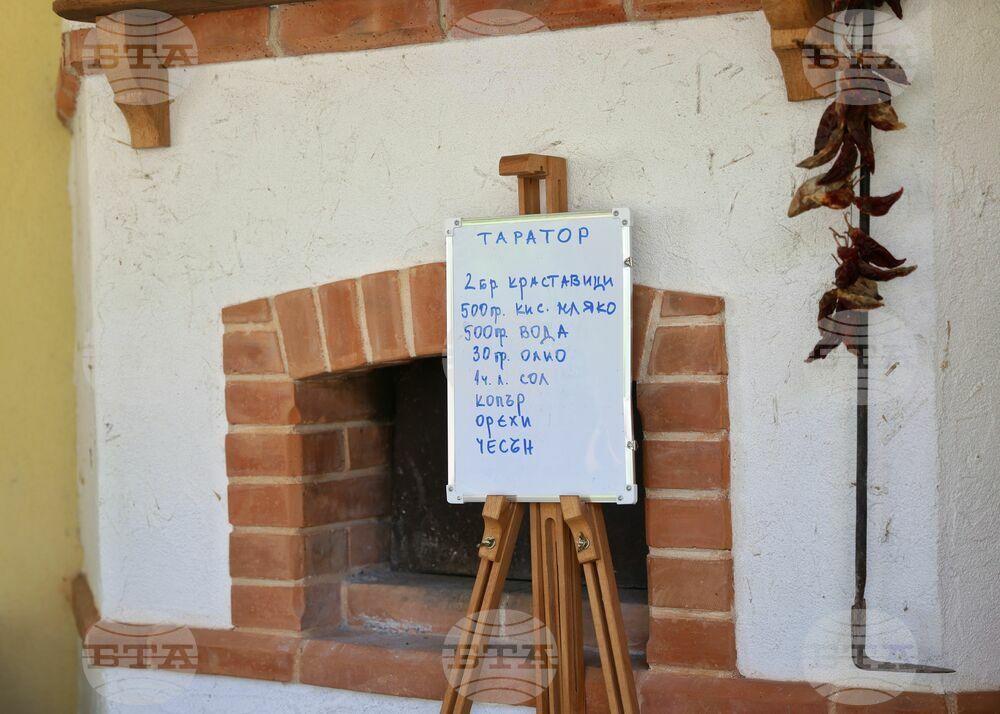 ТАРАТОР
2 бр КРАСТАВИЦИ
500гр. КИС. МЛЯКО
500гр. ВОДА
30 гр. ОЛИО
1ч. л. СОЛ
КОПЪР
ОРЕХИ
ЧЕСЪН
БТА
БТА
БТА
БТА
БТА